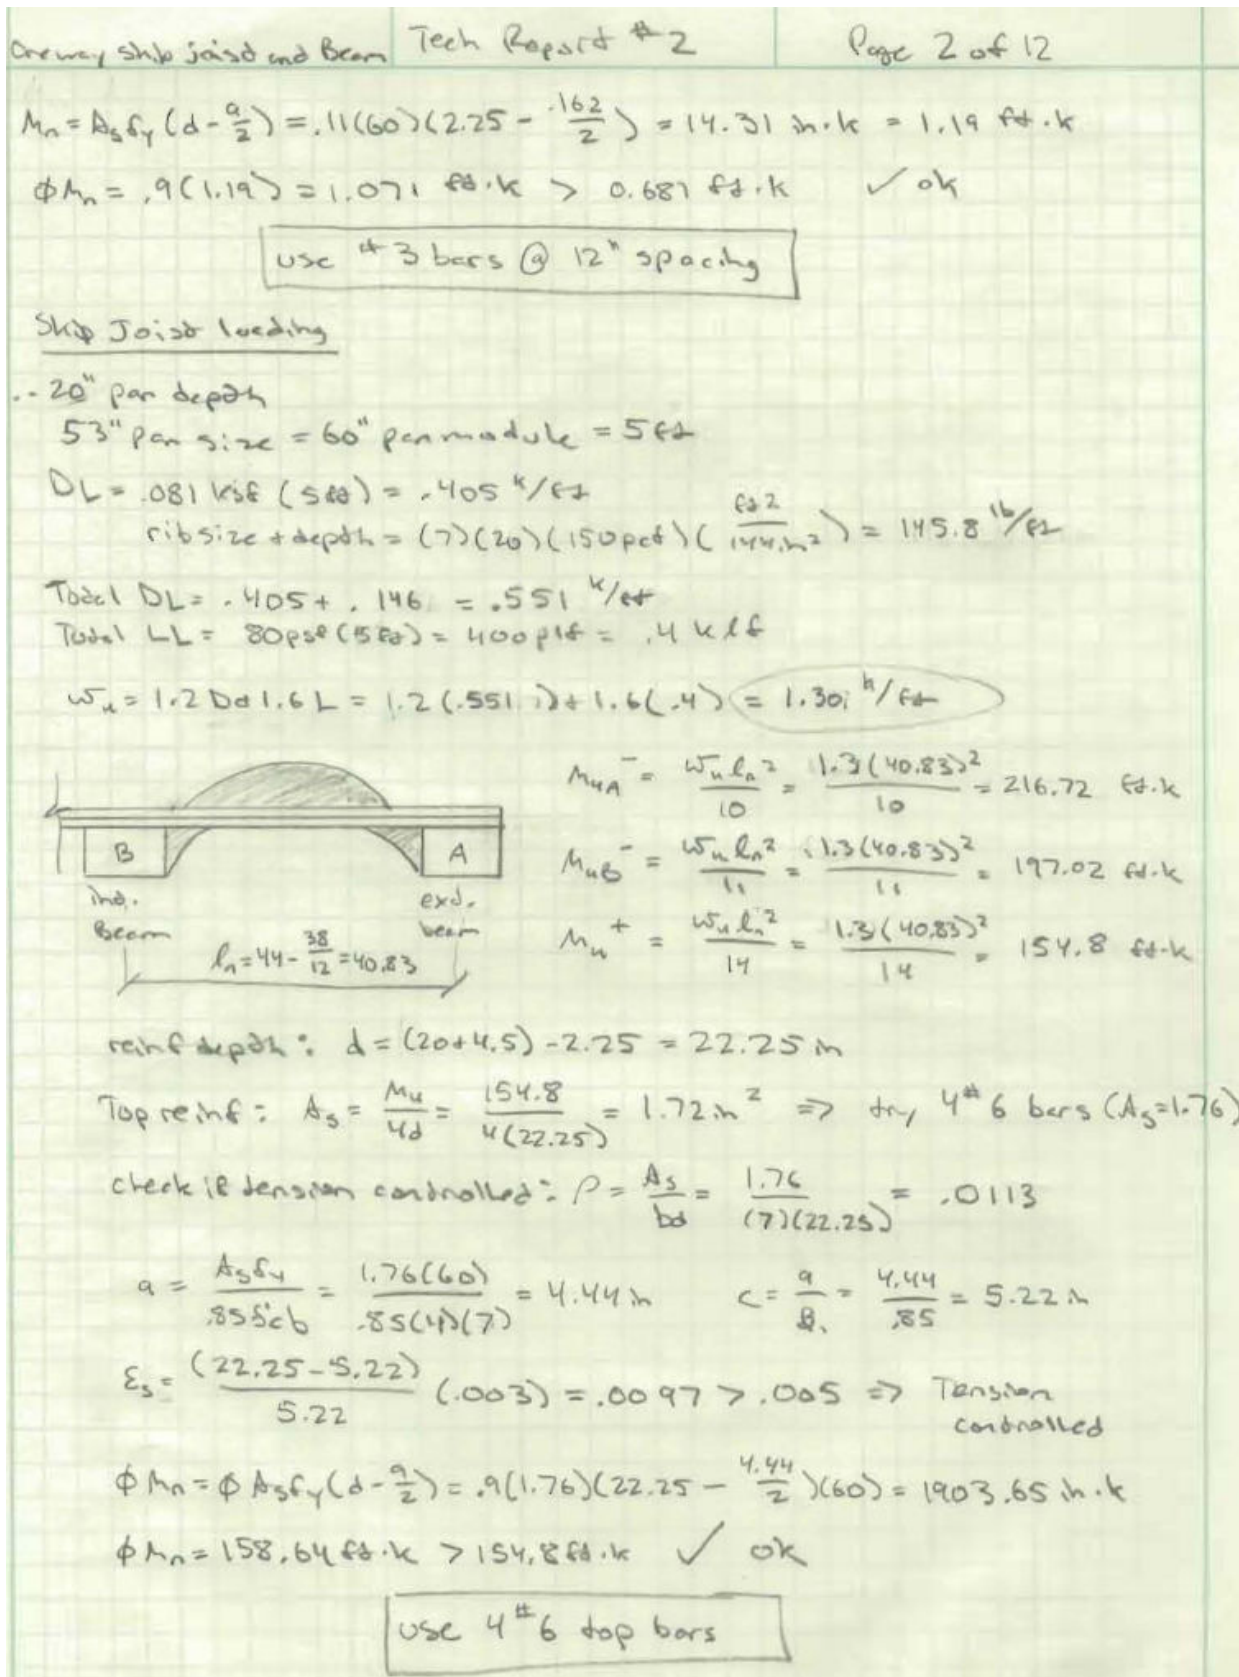 Oneway skip joist and Beam Tech Report #2 Page 2 of 12
Mn = Asfy (d - a/2) = .11(60)(2.25 - .162/2) = 14.31 in.k = 1.19 ft.k
φMn = .9(1.19) = 1.071 ft.k > 0.681 ft.k ✓ ok
use #3 bars @ 12" spacing
Skip Joist loading
.- 20" pan depth
53" pan size = 60" pan module = 5 ft
DL = .081 ksf (5ft) = .405 k/ft
rib size + depth = (7)(20)(150 pcf)(ft2/144in2) = 145.8 lb/ft
Total DL = .405 + .146 = .551 k/ft
Total LL = 80psf (5ft) = 400plf = .4 klf
wu = 1.2 D + 1.6 L = 1.2(.551) + 1.6(.4) = 1.30 k/ft
MuA- = wu ln2/10 = 1.3(40.83)2/10 = 216.72 ft.k
B A
MuB- = wu ln2/11 = 1.3(40.83)2/11 = 197.02 ft.k
int. Beam ext. beam
Mu+ = wu ln2/14 = 1.3(40.83)2/14 = 154.8 ft-k
ln = 44 - 38/12 = 40.83
reinf depth: d = (20+4.5) - 2.25 = 22.25 in
Top reinf: As = Mu/4d = 154.8/4(22.25) = 1.72in2 ⇒ try 4 #6 bars (As=1.76)
check if tension controlled: ρ = As/bd = 1.76/(7)(22.25) = .0113
a = Asfy/.85f'cb = 1.76(60)/.85(4)(7) = 4.44 in c = a/β1 = 4.44/.85 = 5.22in
εs = (22.25 - 5.22)/5.22 (.003) = .0097 > .005 ⇒ Tension
controlled
φMn = φAsfy(d - a/2) = .9(1.76)(22.25 - 4.44/2)(60) = 1903.65 in.k
φMn = 158.64 ft.k > 154.8 ft.k ✓ ok
use 4 #6 top bars